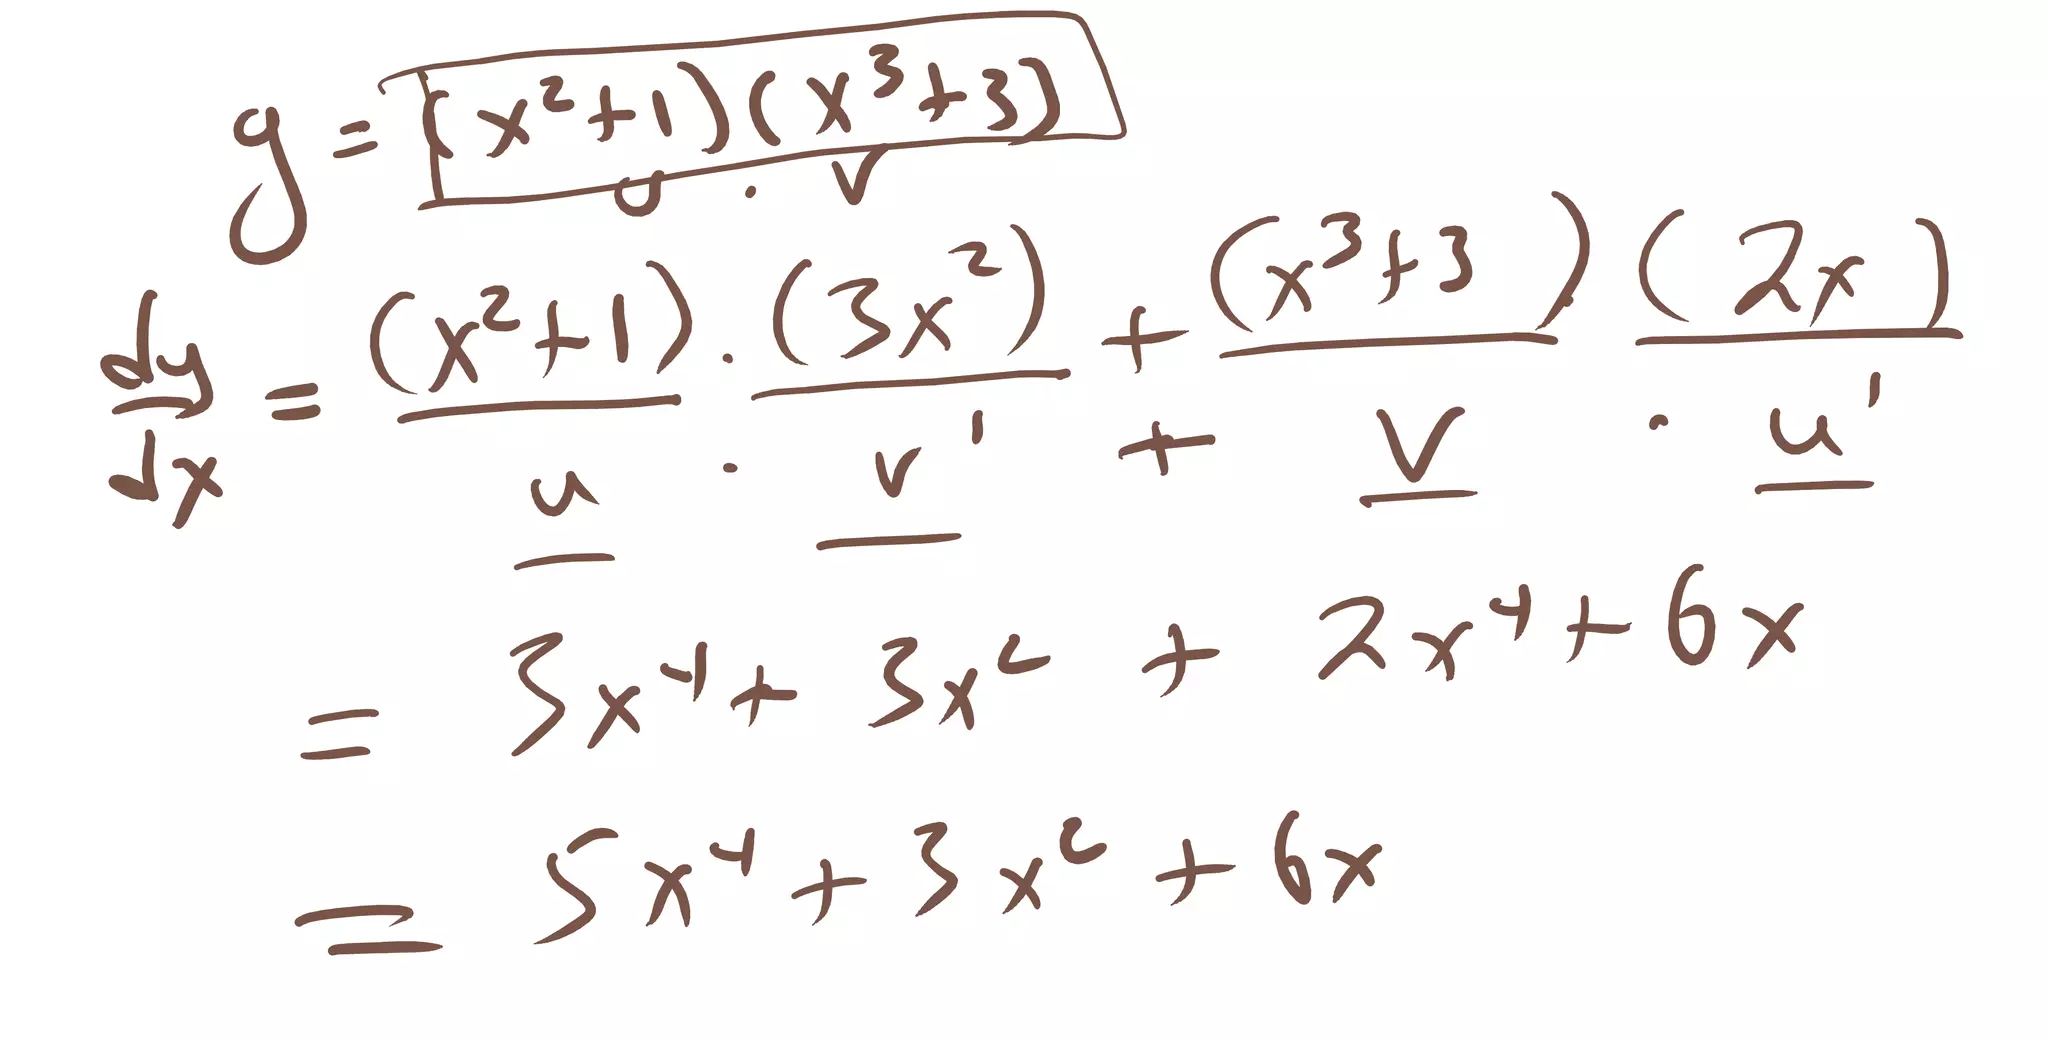 y = (x²+1)(x³+3)
u · v
dy/dx = (x²+1) · (3x²) + (x³+3) (2x)
u · v' + v · u'
= 3x⁴ + 3x² + 2x⁴ + 6x
= 5x⁴ + 3x² + 6x